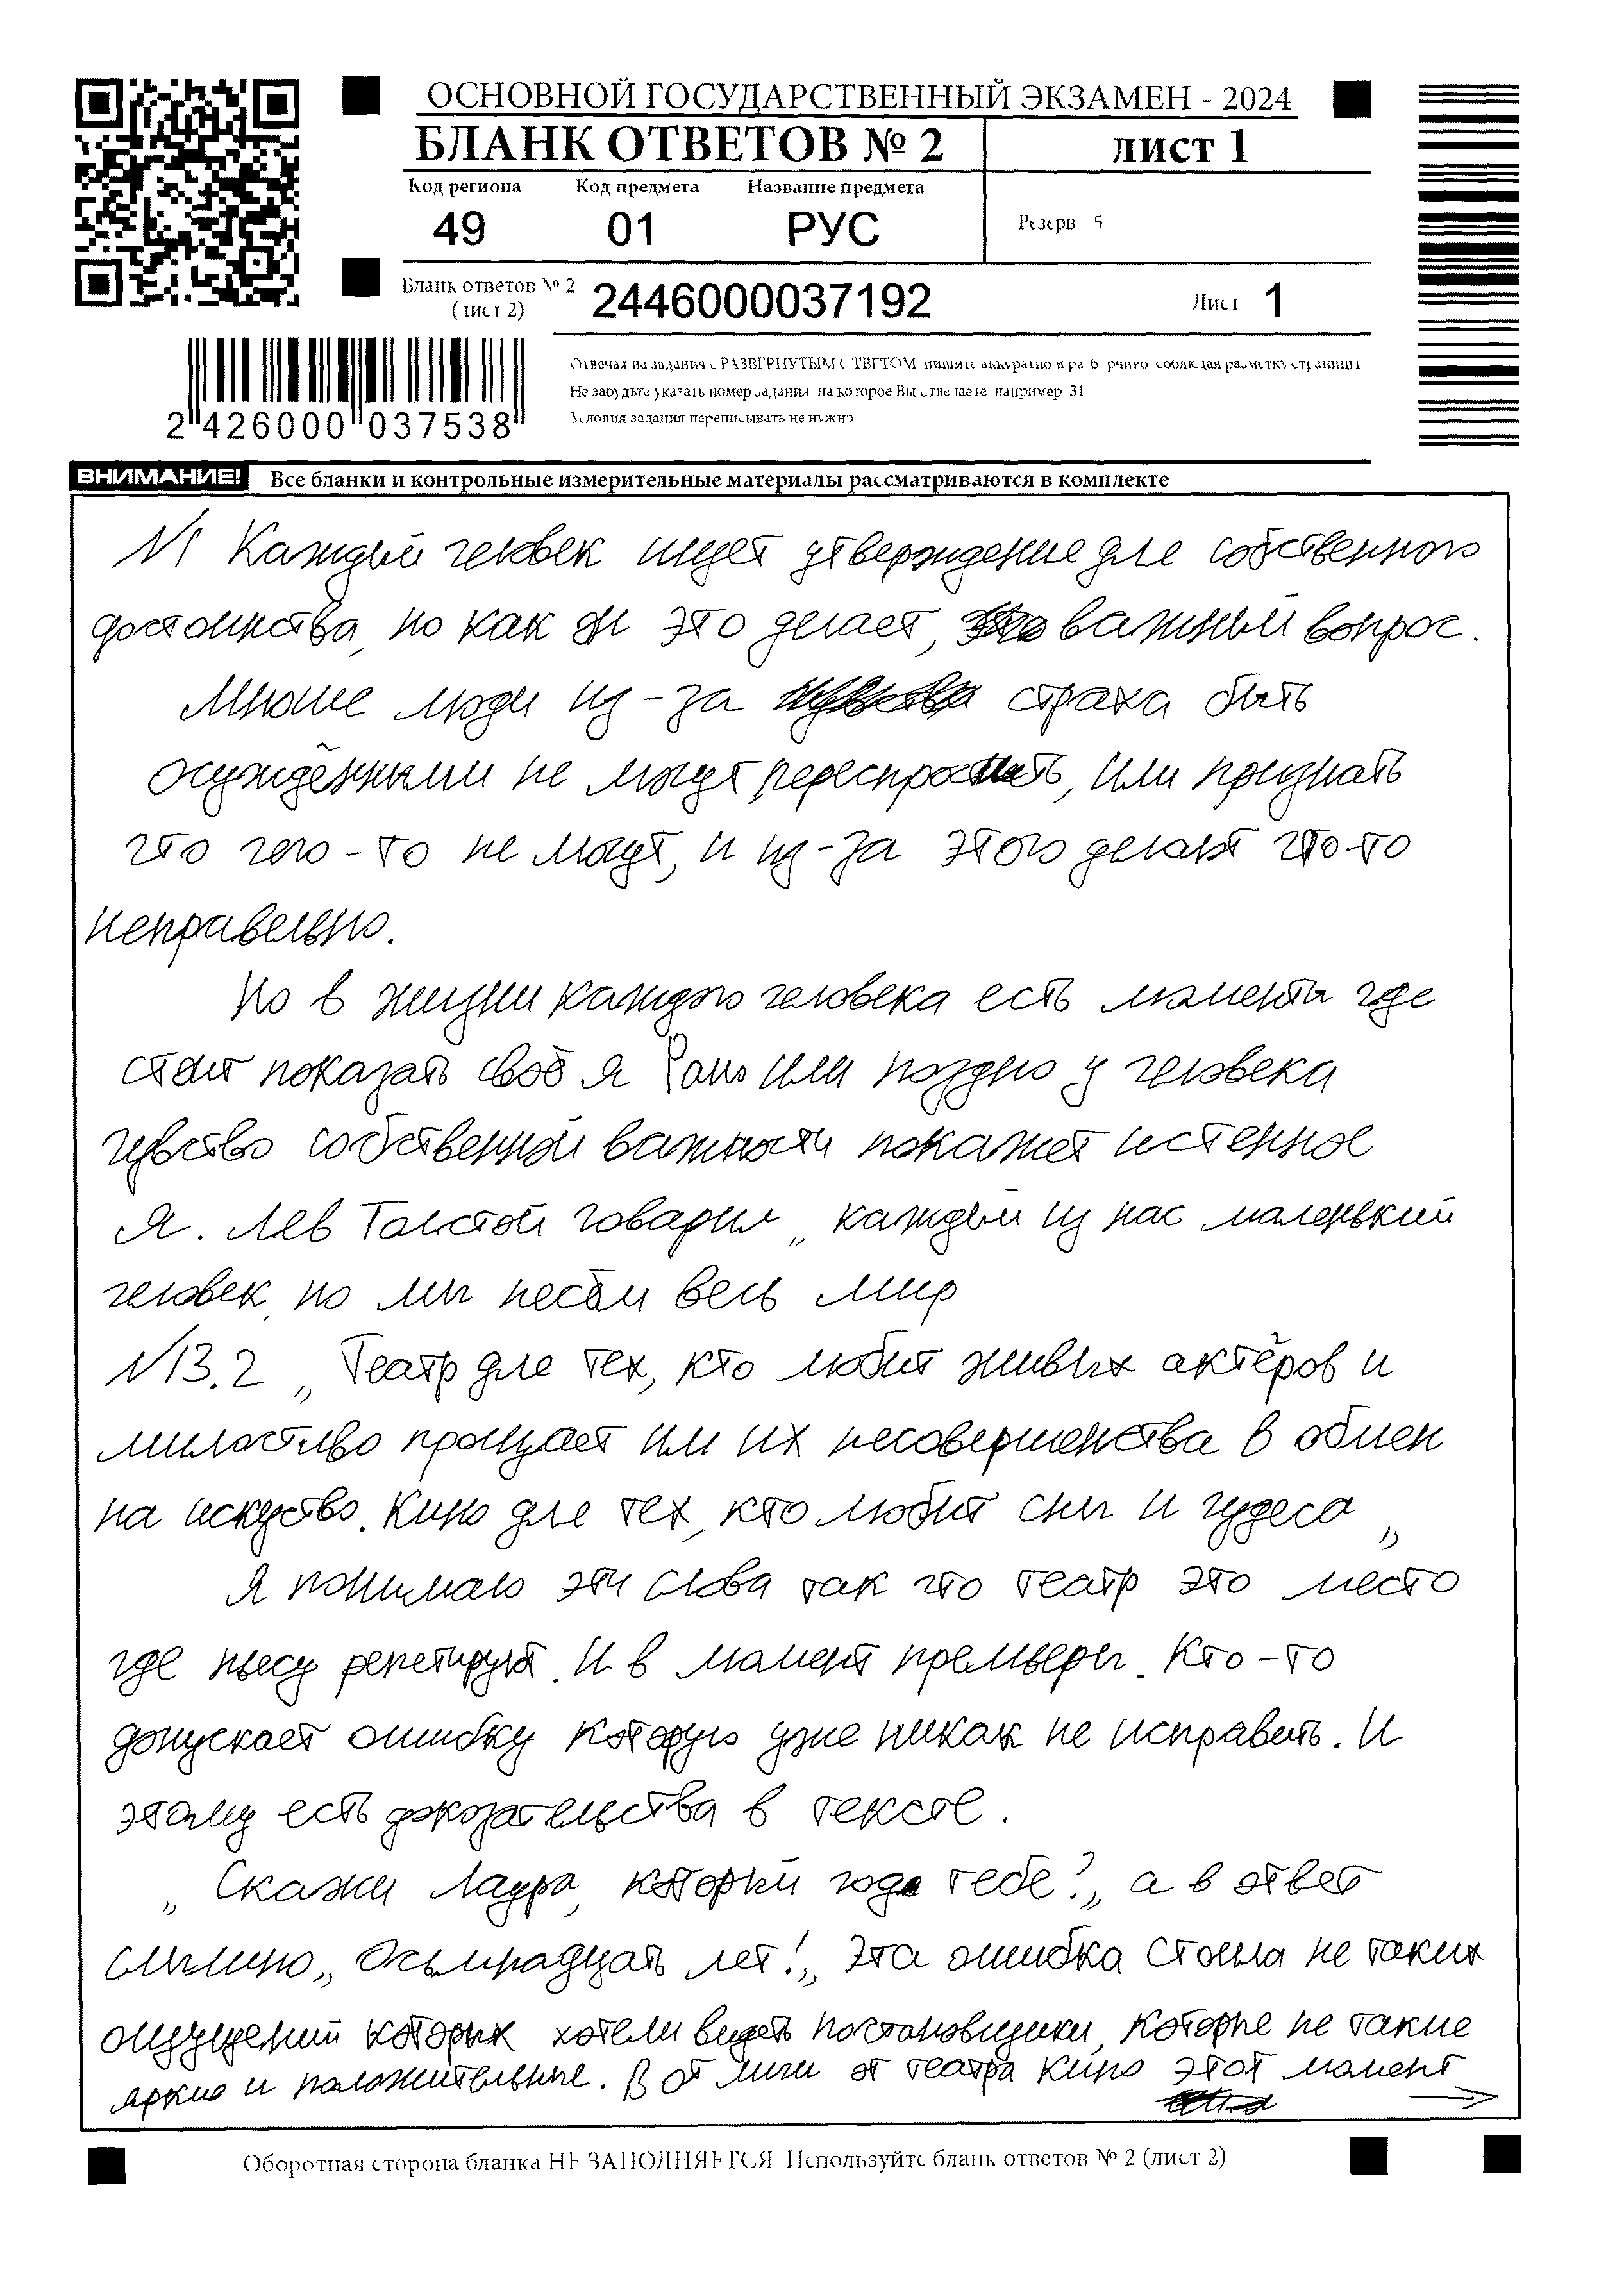 ОСНОВНОЙ ГОСУДАРСТВЕННЫЙ ЭКЗАМЕН - 2024
БЛАНК ОТВЕТОВ № 2
ЛИСТ 1
Код региона Код предмета Название предмета
49 01 РУС
Резерв 5
Бланк ответов № 2
(лист 2)
2446000037192
Лист 1
2 426000 037538
Отвечая на задания с РАЗВЕРНУТЫМ ОТВЕТОМ пишите аккуратно и разборчиво соблюдая разметку страницы
Не забудьте указать номер задания на которое Вы отвечаете например 31
Условия задания переписывать не нужно
ВНИМАНИЕ! Все бланки и контрольные измерительные материалы рассматриваются в комплекте
N1 Каждый человек ищет утверждение для собственного
достоинства, но как он это делает, важный вопрос.
Многие люди из-за страха быть
осуждёнными не могут переспросить, или признать
что чего-то не могут, и из-за этого делают что-то
неправельно.
Но в жизни каждого человека есть моменты где
стоит показать своё я Рано или поздно у человека
чувство собственной важности покажет истенное
я. Лев Толстой говорил „ каждый из нас маленький
человек, но мы несём весь мир
N13.2 „ Театр для тех, кто любит живых актёров и
милостиво прощает им их несовершенства в обмен
на искуство. Кино для тех, кто любит сны и чудеса „
Я понимаю эти слова так что театр это место
где пьесу репетируют. И в момент премьеры. Кто-то
допускает ошибку которую уже никак не исправеть. И
этому есть доказательства в тексте.
„ Скажи Лаура, который года тебе? „ а в ответ
слышно „ Осьмнадцать лет! „ Эта ошибка стоила не таких
ощущений которых хотели видеть постановщики, которые не такие
яркие и положительные. В отличи от театра кино этот момент
Оборотная сторона бланка НЕ ЗАПОЛНЯЕТСЯ Используйте бланк ответов № 2 (лист 2)